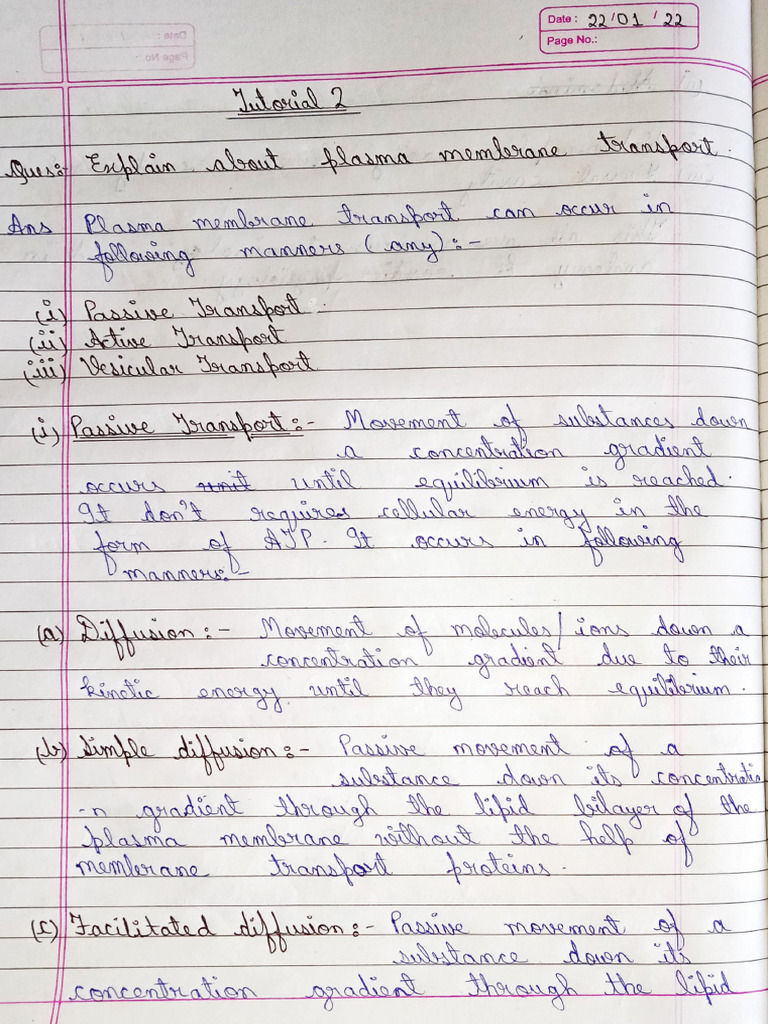 Date : 22/01/22
Page No.:
Tutorial 2
Ques:- Explain about plasma membrane transport.
Ans Plasma membrane transport can occur in
following manners (any) :-
(i) Passive Transport
(ii) Active Transport
(iii) Vesicular Transport
(i) Passive Transport :- Movement of substances down
a concentration gradient
occurs until equilibrium is reached.
It don't requires cellular energy in the
form of ATP. It occurs in following
manners:-
(a) Diffusion :- Movement of molecules/ions down a
concentration gradient due to their
kinetic energy until they reach equilibrium.
(b) Simple diffusion :- Passive movement of a
substance down its concentratio
-n gradient through the lipid bilayer of the
plasma membrane without the help of
membrane transport proteins.
(c) Facilitated diffusion :- Passive movement of a
substance down its
concentration gradient through the lipid